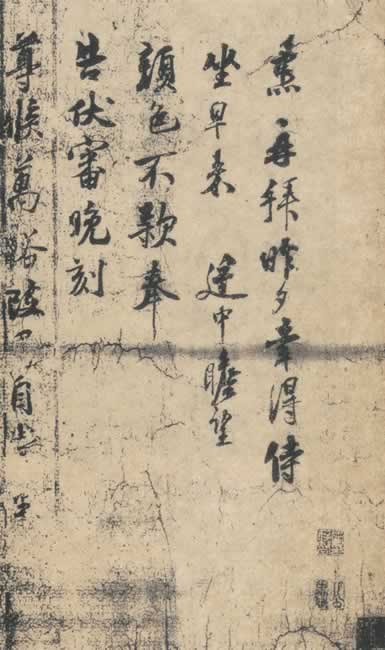 熹再拜昨夕幸得侍
坐早來 途中瞻望
顔色不款奉
告伏審晚刻
尊候萬